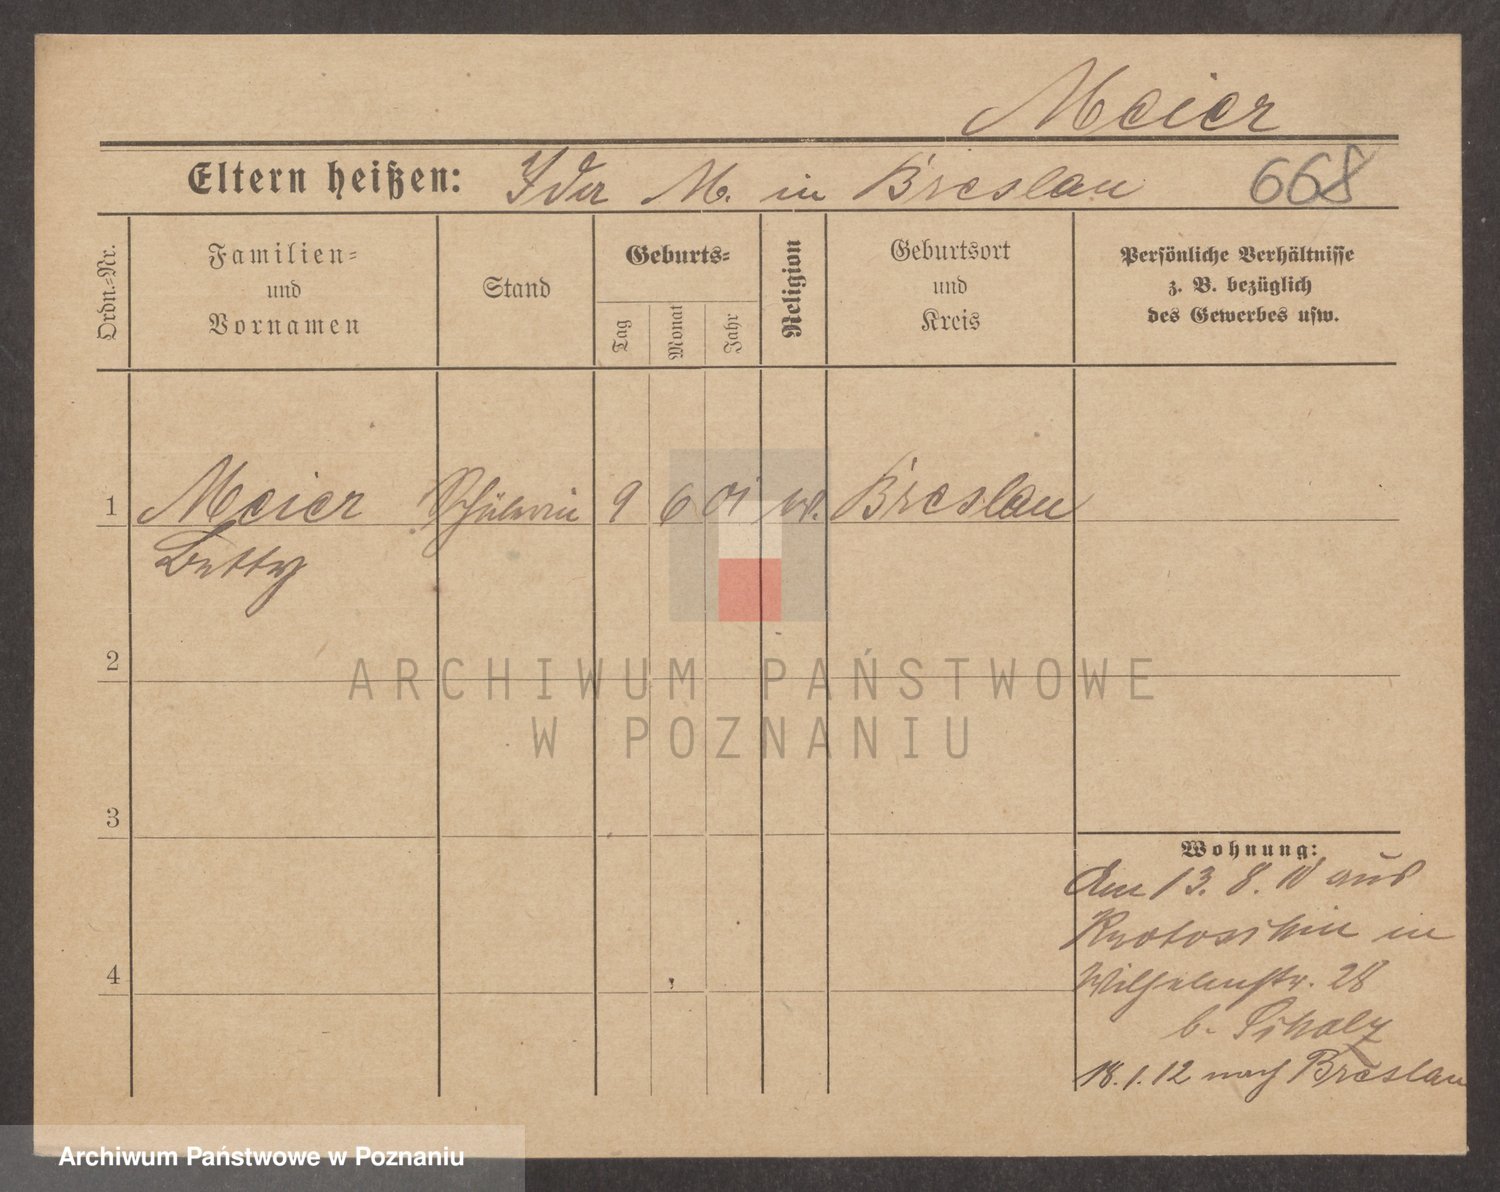 Meier
Eltern heißen: M. in Breslau 668
Ordn.-Nr.
Familien-
und
Vornamen
Stand
Geburts-
Tag
Monat
Jahr
Religion
Geburtsort
und
Kreis
Persönliche Verhältnisse
z. B. bezüglich
des Gewerbes usw.
1 Meier Schülerin 9 6 01 Breslau
Betty
2
ARCHIWUM PAŃSTWOWE
W POZNANIU
3
Wohnung:
Am 13. 8. 10 aus
Krotoschin in
4
Wilhelmstr. 28
b. Scholz
18. 1. 12 nach Breslau
Archiwum Państwowe w Poznaniu